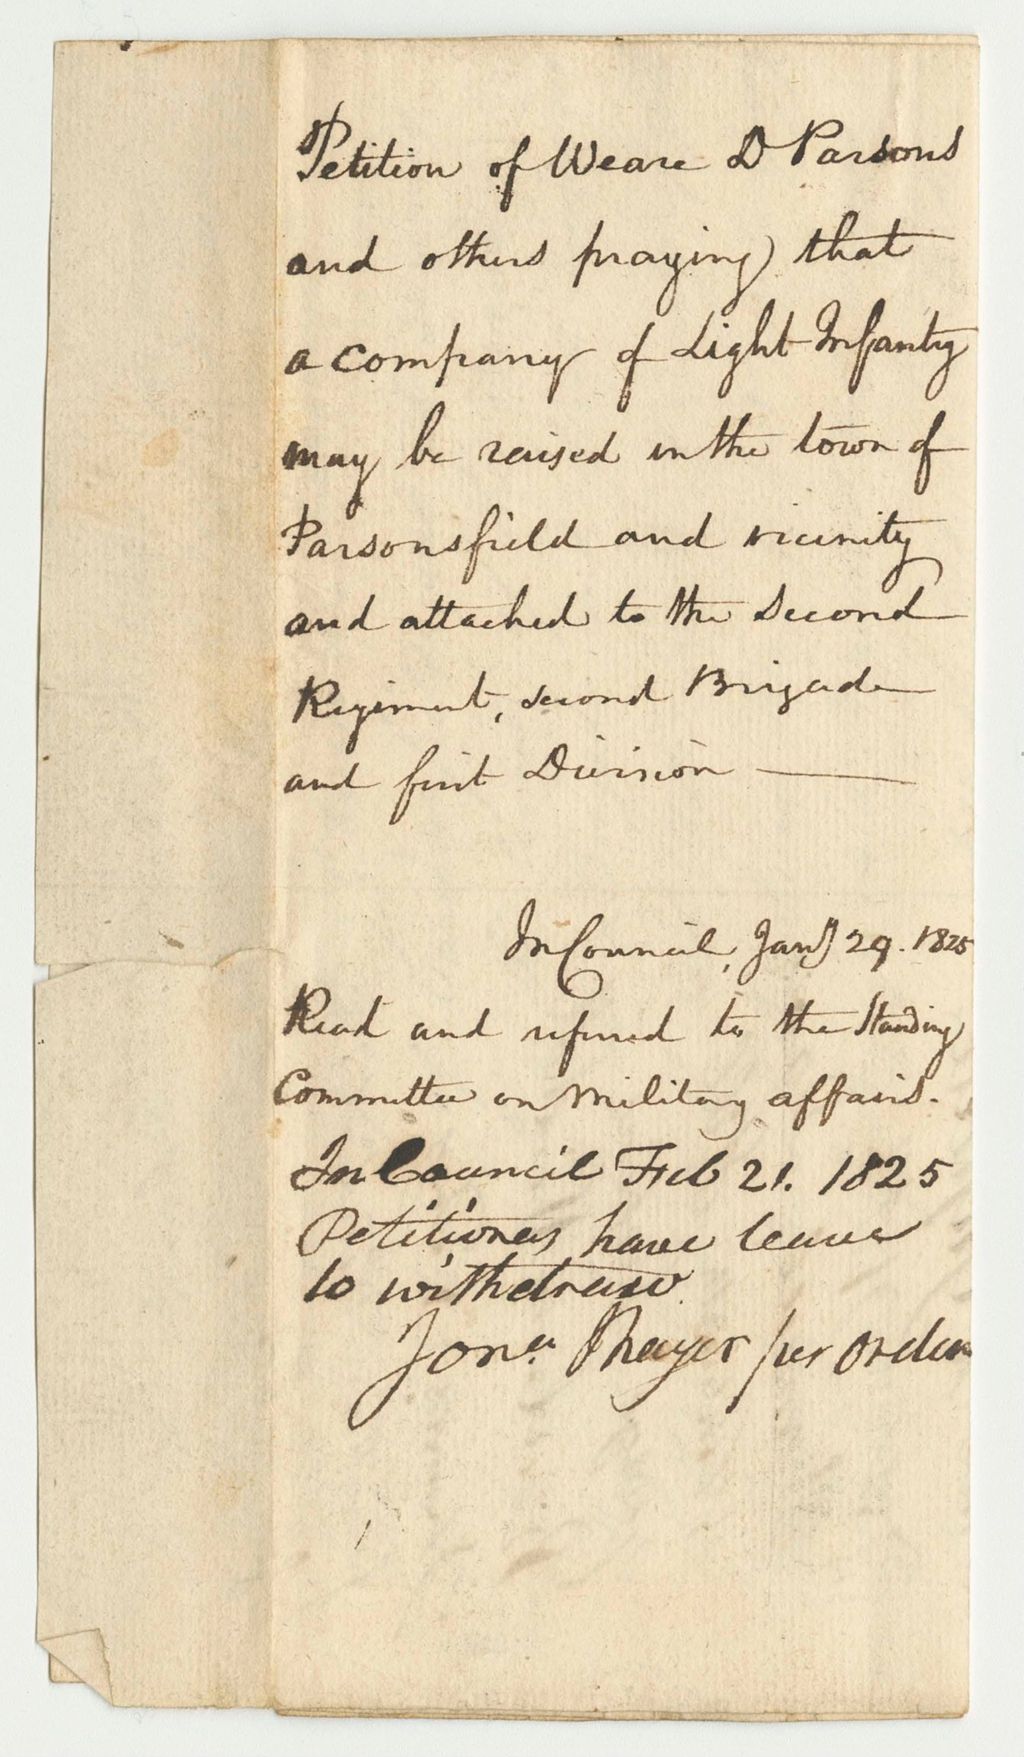 Petition of Weare D Parsons
and others praying that
a company of Light Infantry
may be raised in the town of
Parsonsfield and vicinity
and attached to the Second
Regiment, second Brigade
and first Division —
In Council, Jany 29. 1825
Read and referred to the Standing
Committee on Military affairs.
In Council Feb 21. 1825
Petitioners have leave
to withdraw.
Jona. Thayer per order